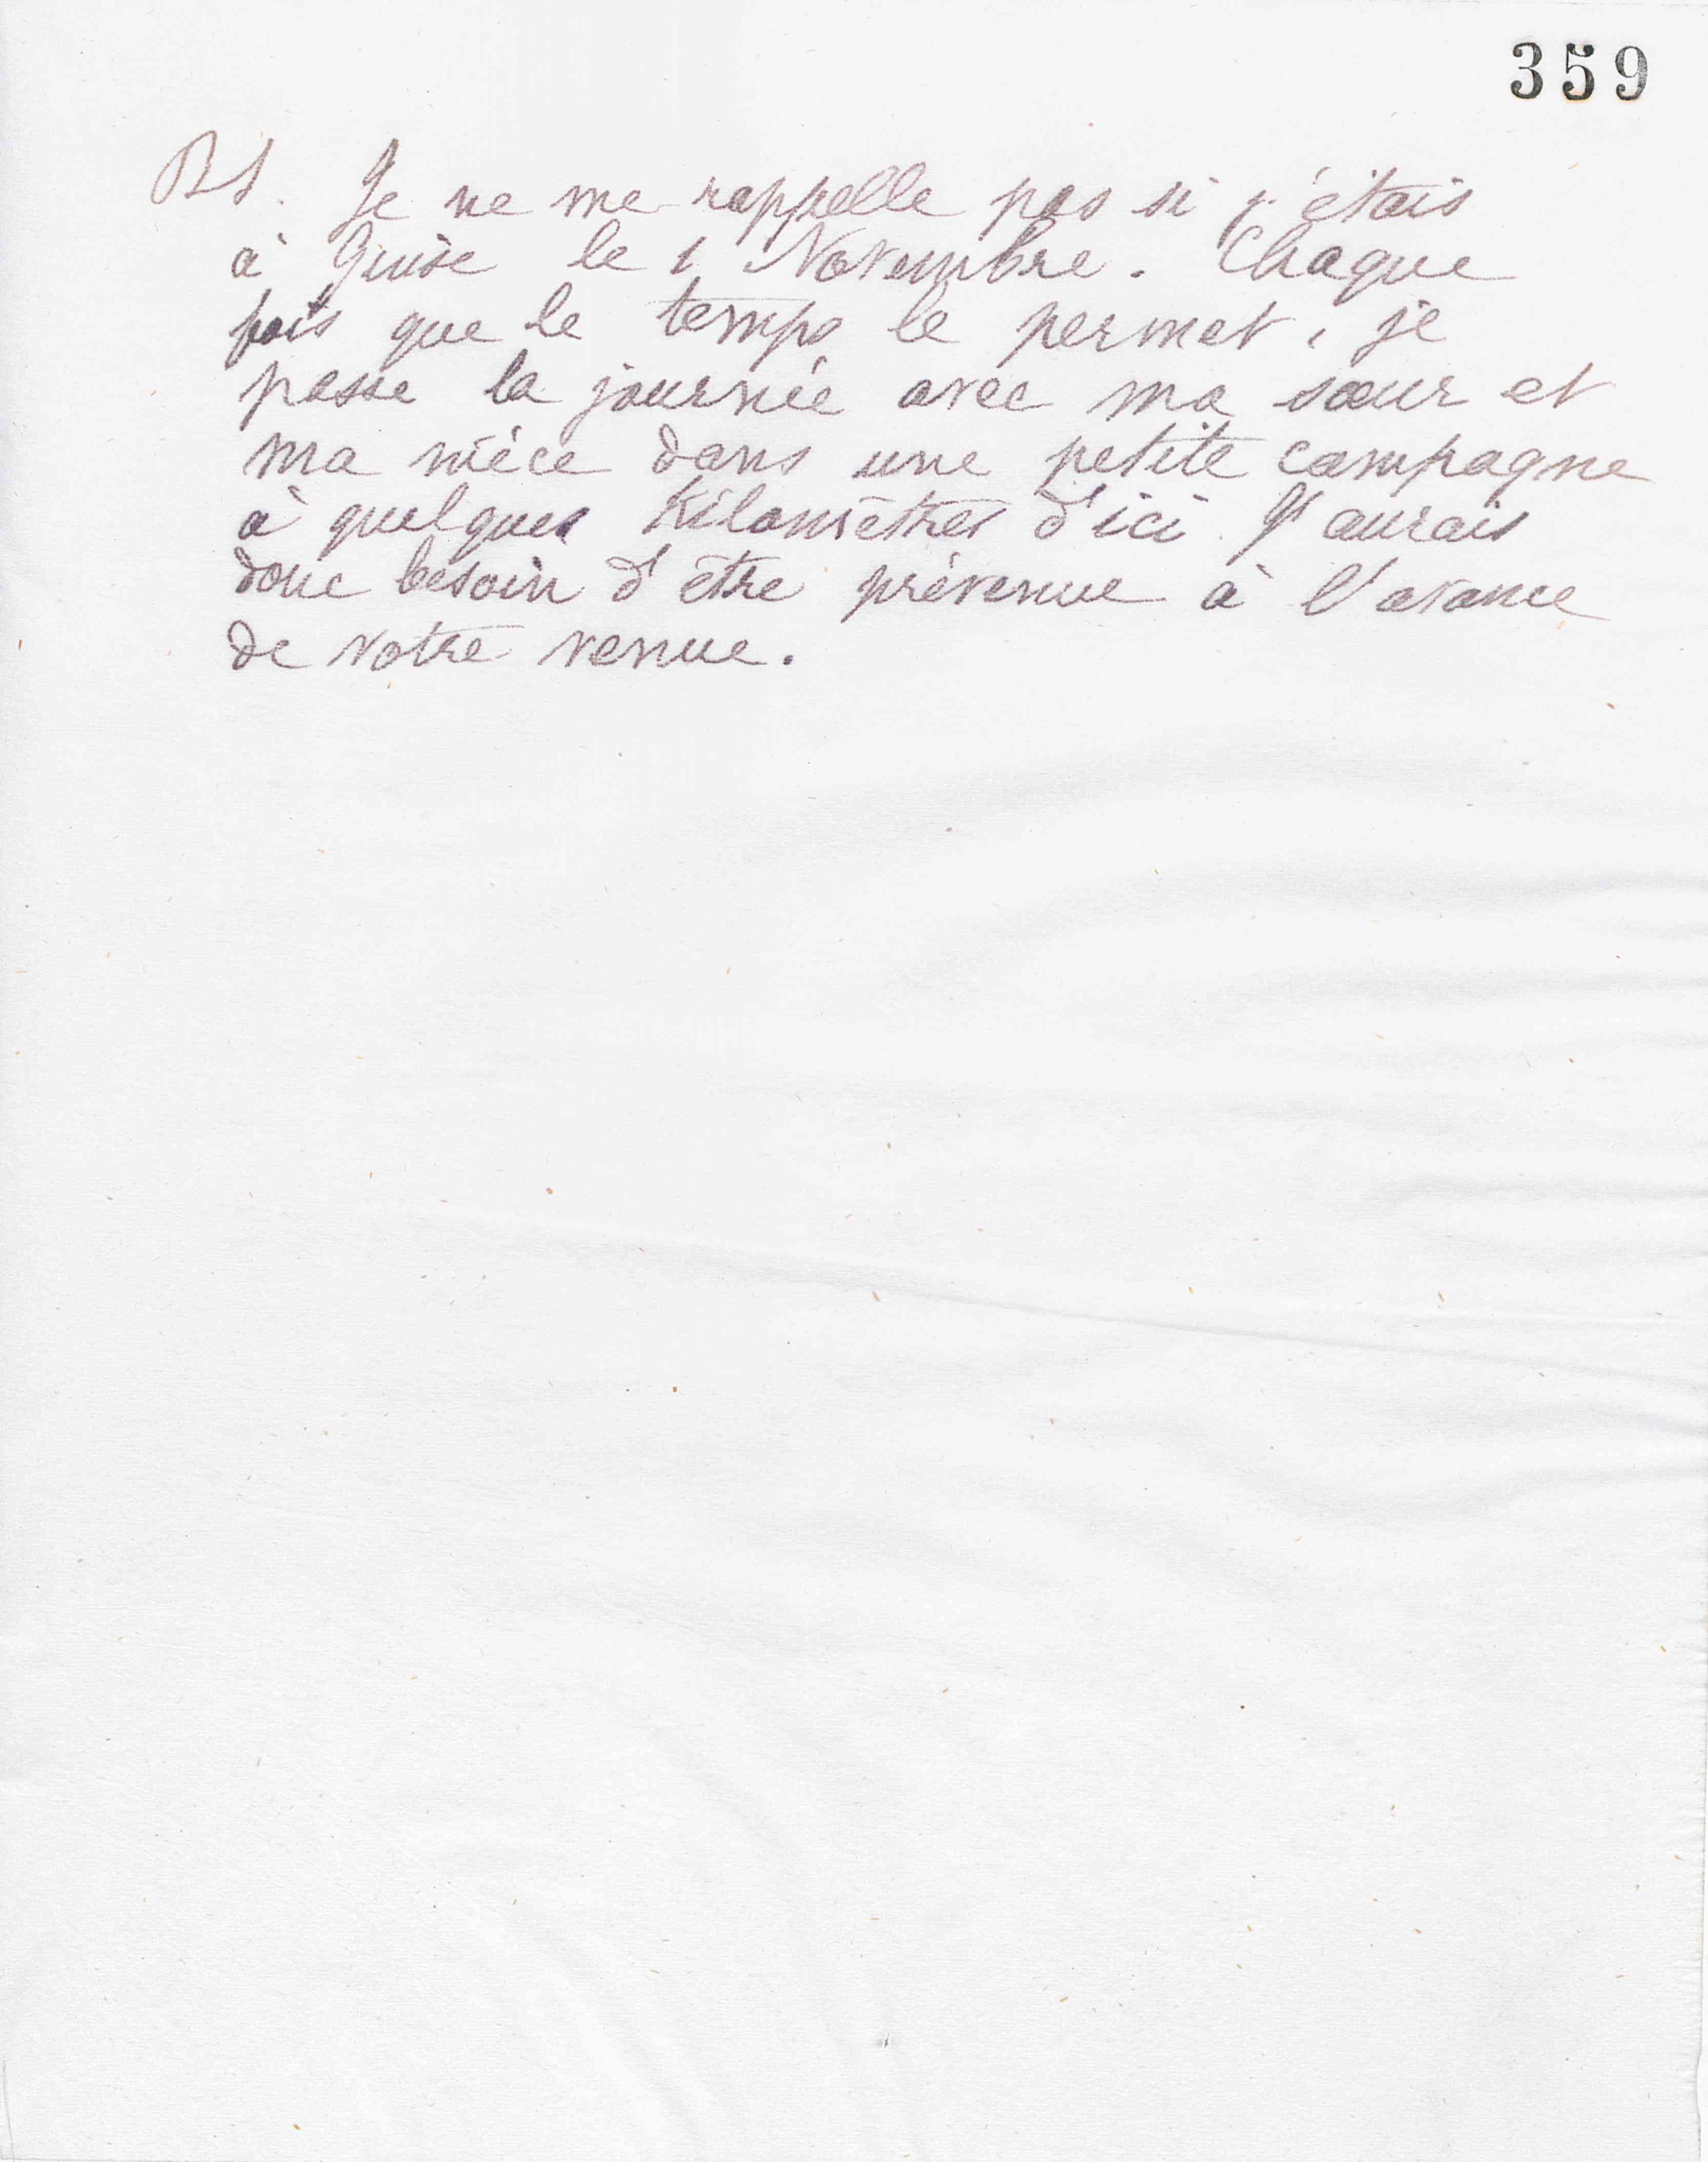 359
PS. Je ne me rappelle pas si j'étais
à Guise le 1 Novembre. Chaque
fois que le temps le permet, je
passe la journée avec ma sœur et
ma nièce dans une petite campagne
à quelques Kilomètres d'ici. J'aurais
donc besoin d'être prévenue à l'avance
de votre venue.